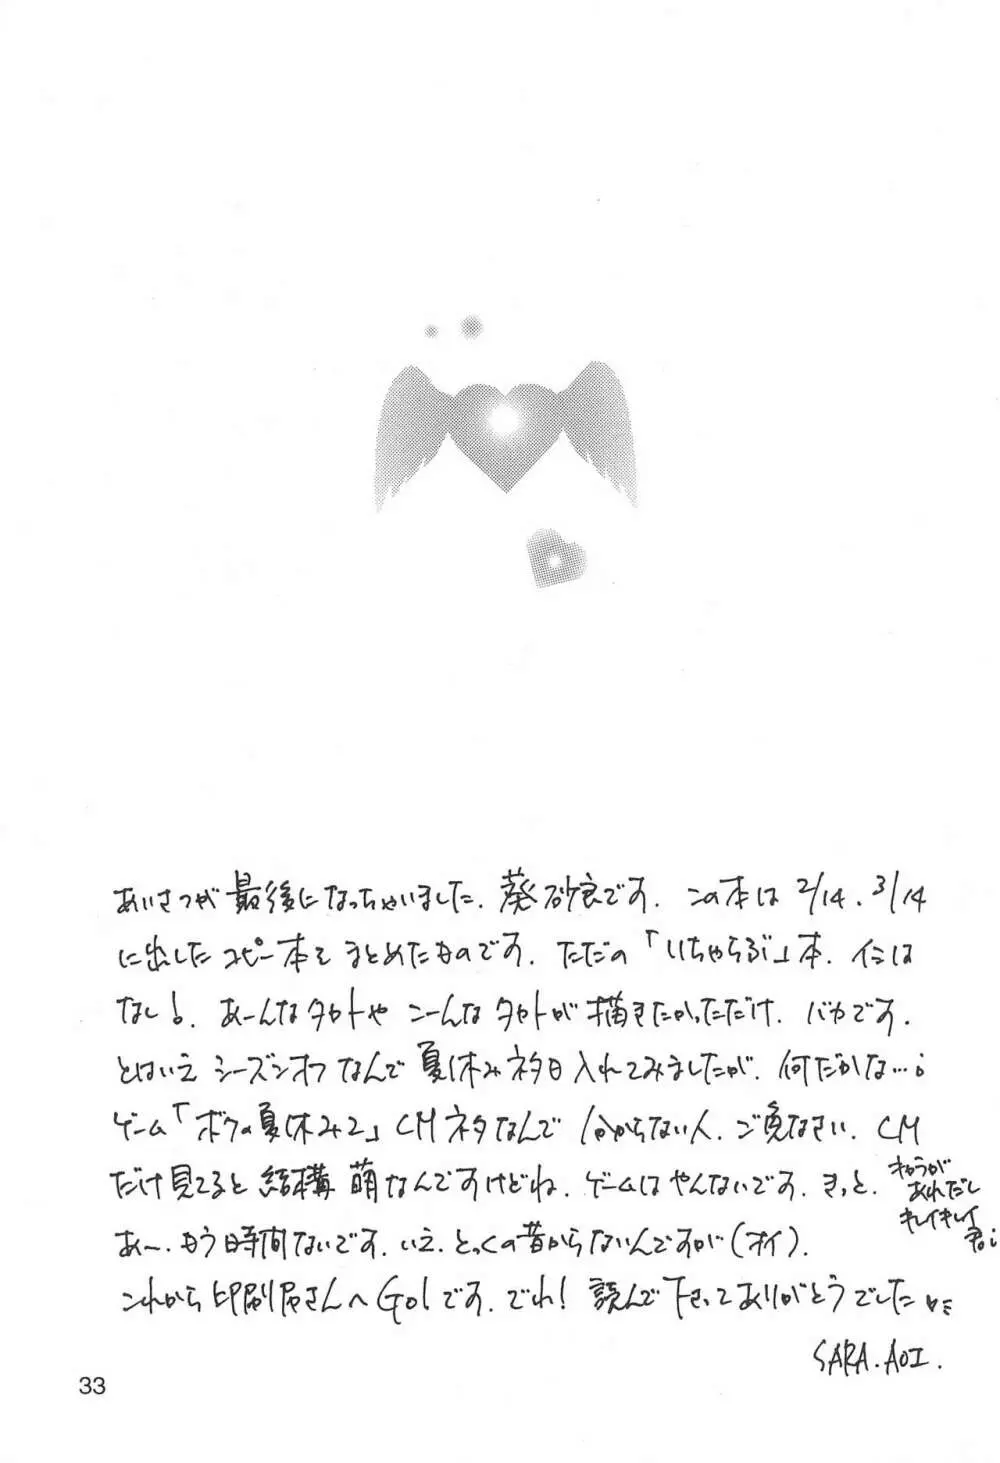 あいさつが最後になっちゃいました. 葵砂良です. この本は 2/14. 3/14
に出したコピー本をまとめたものです. ただの「いちゃらぶ」本. イミは
なし! あーんなタイトやこーんなタイトが描きたかっただけ. バカです.
とはいえシーズンオフなんで夏休みネタ 入れてみましたが. 何だかな…。
ゲーム「ボクの夏休み2」CMネタなんで分からない人. ご免なさい. CM
だけ見てると結構萌なんですけどね. ゲームはやんないです. きっと.
あれだし
キレイキレイ
あ〜. もう時間ないです. いえ. とっくの昔からないんですが(オイ).
これから印刷屋さんへGo!です. でわ! 読んで下さってありがとうでした
SARA.AOI.
33